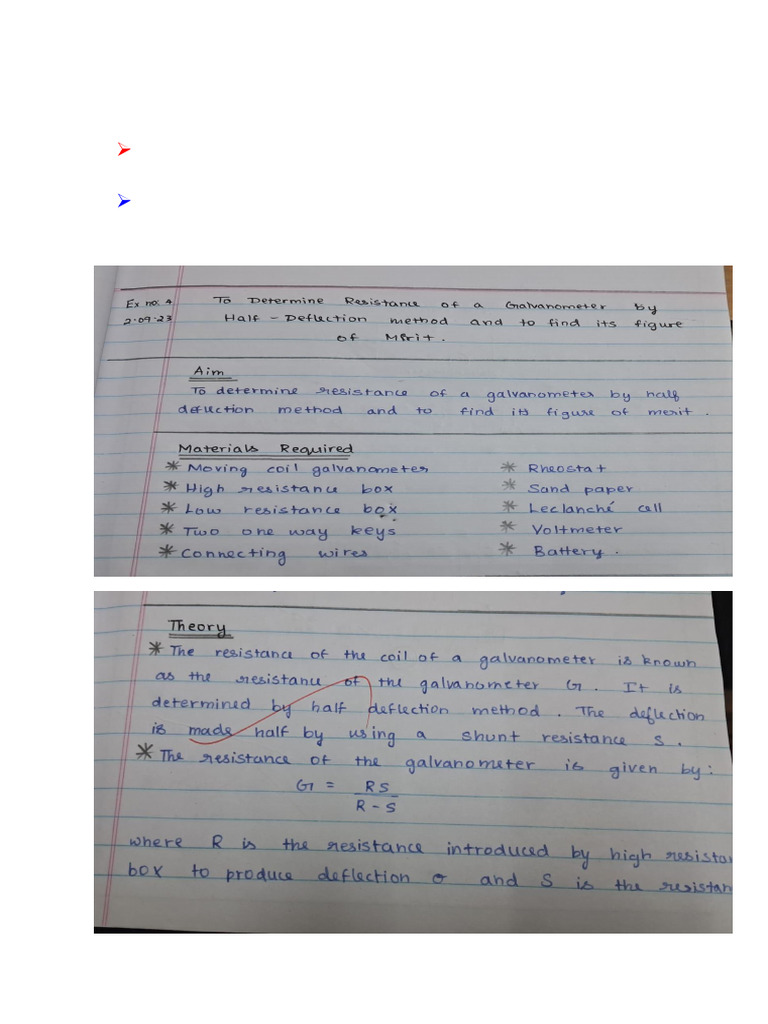 Ex no: 4
2.09.23
To Determine Resistance of a Galvanometer by
Half - Deflection method and to find its figure
of Merit.
Aim
To determine resistance of a galvanometer by half
deflection method and to find its figure of merit.
Materials Required
* Moving coil galvanometer
* High resistance box
* Low resistance box
* Two one way keys
* Connecting wires
* Rheostat
* Sand paper
* Leclanché cell
* Voltmeter
* Battery.
Theory
* The resistance of the coil of a galvanometer is known
as the resistance of the galvanometer G. It is
determined by half deflection method. The deflection
is made half by using a shunt resistance S.
* The resistance of the galvanometer is given by:
G = RS
R - S
where R is the resistance introduced by high resistan
box to produce deflection σ and S is the resistan